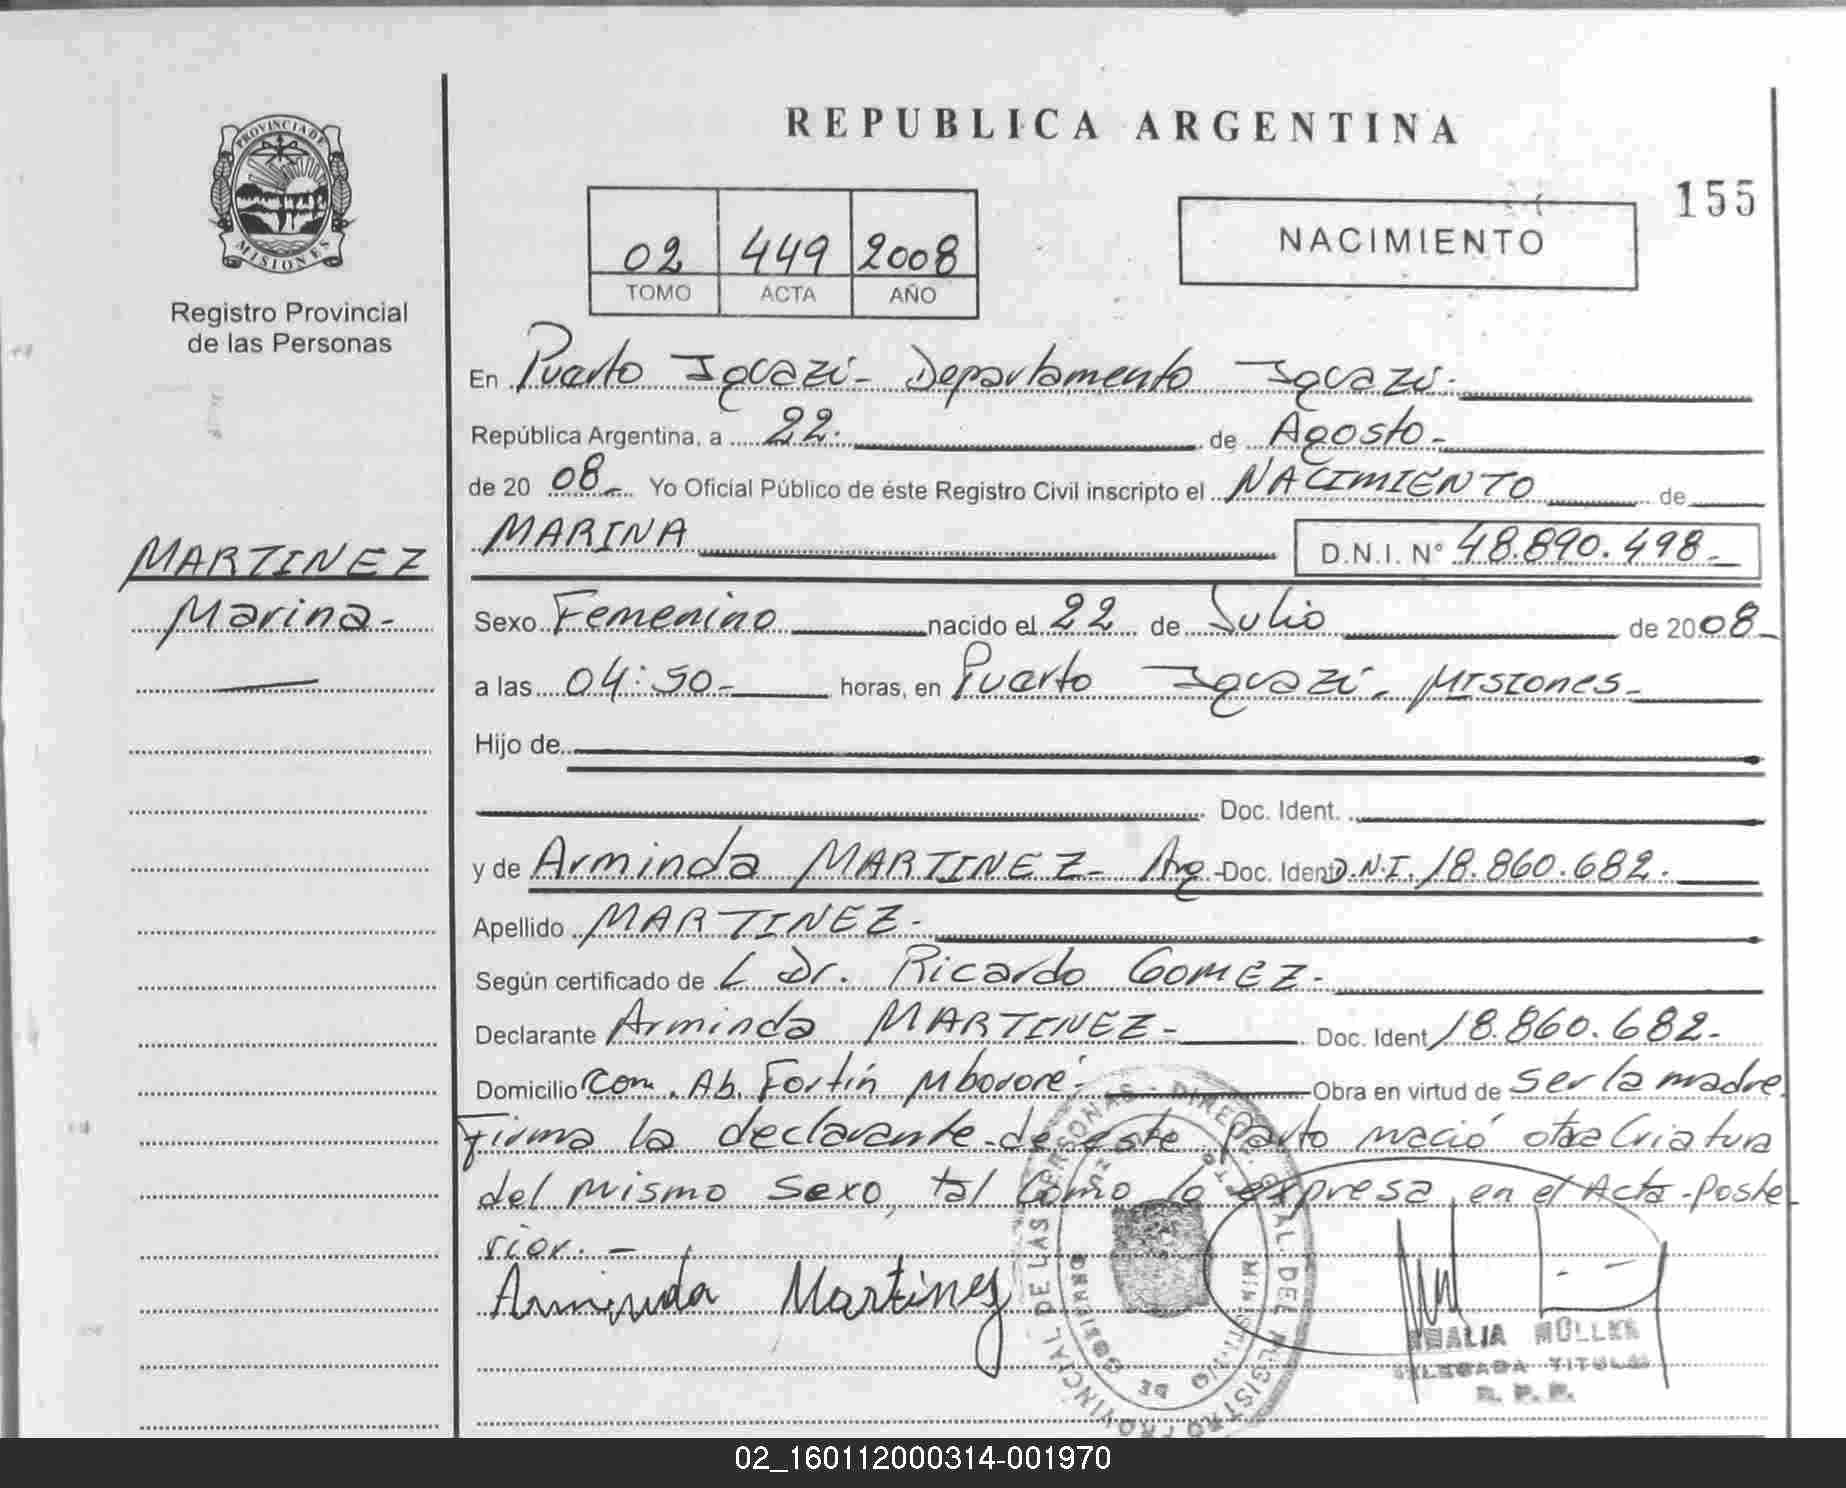 PROVINCIA DE
MISIONES
Registro Provincial
de las Personas
MARTINEZ
Marina -
REPUBLICA ARGENTINA
155
02 449 2008
TOMO ACTA AÑO
NACIMIENTO
En Puerto Iguazú - Departamento Iguazú -
República Argentina, a 22. de Agosto -
de 20 08 - Yo Oficial Público de éste Registro Civil inscripto el NACIMIENTO de
MARINA D.N.I. N° 48.890.498 -
Sexo Femenino nacido el 22 de Julio de 2008 -
a las 04:50 - horas, en Puerto Iguazú - Misiones -
Hijo de
Doc. Ident.
y de Arminda MARTINEZ - Arg - Doc. Ident D.N.I. 18.860.682.
Apellido MARTINEZ -
Según certificado de L Dr. Ricardo GOMEZ -
Declarante Arminda MARTINEZ - Doc. Ident 18.860.682 -
Domicilio Com. Ab. Fortín Mbororé - Obra en virtud de ser la madre
Firma la declarante - de este parto nació otra Criatura
del mismo sexo, tal como lo expresa en el Acta - Poste
rior. -
Arminda Martinez
DIREC. GRAL. DEL REGISTRO PROVINCIAL DE LAS PERSONAS
MINISTERIO DE GOBIERNO
MÜLLER
DELEGADA TITULAR
R. P. P.
02_160112000314-001970